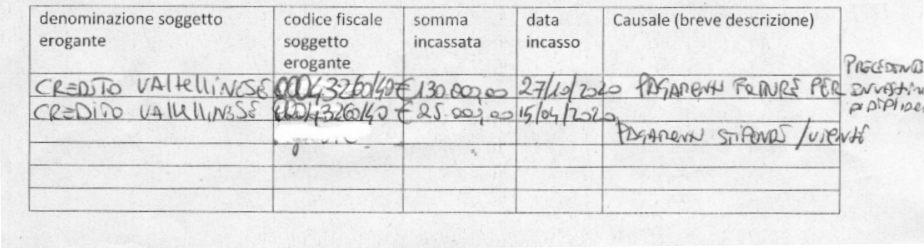 denominazione soggetto erogante codice fiscale soggetto erogante somma incassata data incasso Causale (breve descrizione)
CREDITO VALTELLINESE 00043260140 € 130.000,00 27/10/2020 PAGAMENTI FATTURE PER
CREDITO VALTELLINESE 00043260140 € 25.000,00 15/04/2020
PAGAMENTI STIPENDI /UTENZE